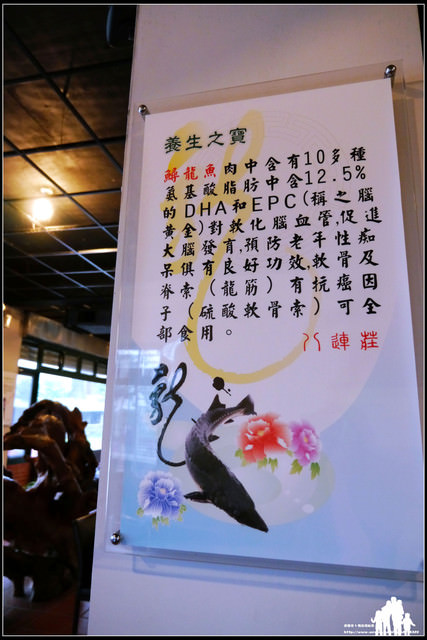 養生之寶
鱘龍魚肉中含有10多種
氨基酸脂肪中含12.5%
的DHA和EPC(稱之腦
黃金)對軟化腦血管,促進
大腦發育,預防老年性痴
呆俱有良好功效,軟骨及
脊索(龍筋)有抗癌因
子(硫酸軟骨素)可全
部食用。
八連莊
龍